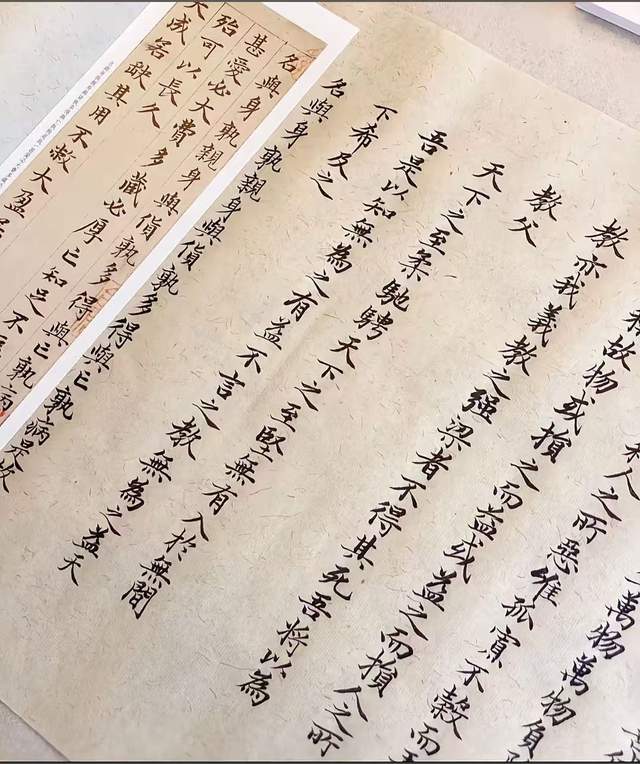 萬物萬物負
人之所惡惟孤寡不穀而
故物或損之而益或益之而損人之所
教亦我義教之強梁者不得其死吾將以為
教父
天下之至柔馳騁天下之至堅無有入於無間
吾是以知無為之有益不言之教無為之益天
下希及之
名與身孰親身與貨孰多得與亡孰病是故
名與身孰親身與貨孰多得與亡孰病
甚愛必大費多藏必厚亡知足不
殆可以長久
大成若缺其用不敝大盈